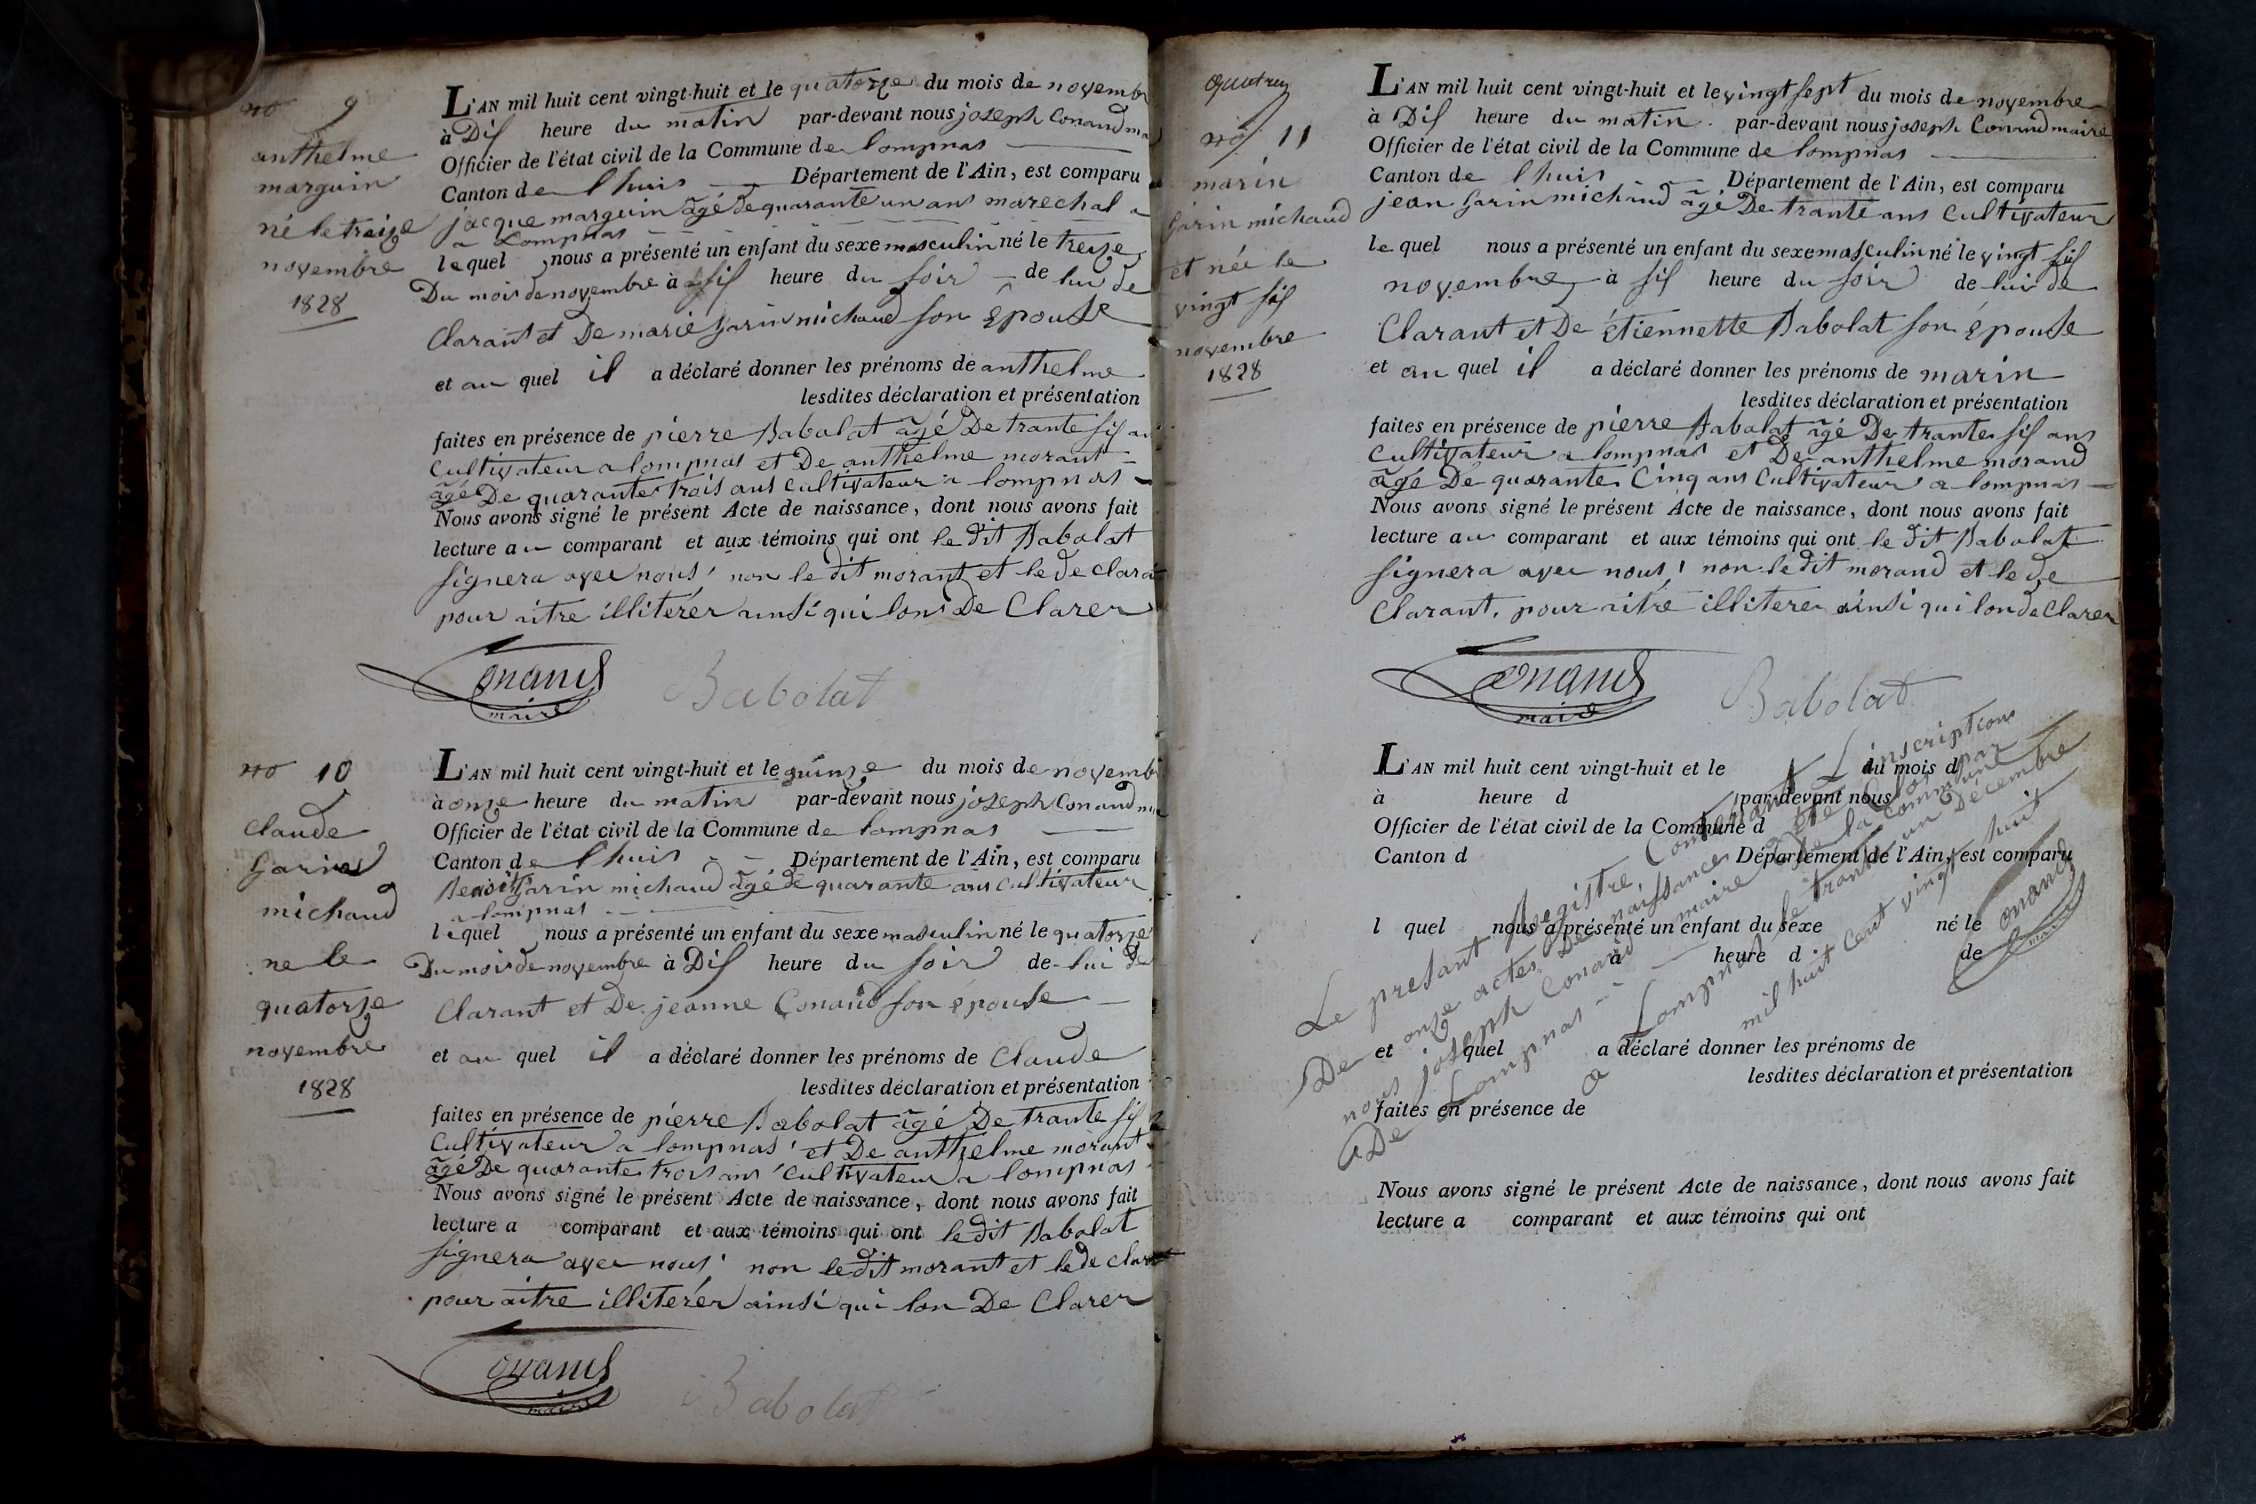 no 9
anthelme
marguin
né le treize
novembre
1828
L'AN mil huit cent vingt-huit et le quatorze du mois de novembre
à Dis heure du matin par-devant nous joseph Conand ma
Officier de l'état civil de la Commune de lompnas
Canton de l huis Département de l'Ain, est comparu
jacque marguin âgé de quarante un ans marechal a
a Lompnas
lequel nous a présenté un enfant du sexe masculin né le treize
Du mois de novembre à sis heure du soir de lui de
Clarant et De marie garin michaud son Epouse
et au quel il a déclaré donner les prénoms de anthelme
lesdites déclaration et présentation
faites en présence de pierre Babolat âgé De trante sis an
Cultivateur a lompnas et De anthelme morant
âgé De quarante trois ans Cultivateur a lompnas
Nous avons signé le présent Acte de naissance, dont nous avons fait
lecture au comparant et aux témoins qui ont le dit Babolat
signera avec nous' non le dit morant et le de clara
pour aitre illitérer ainsi qui lon De Clarer
Conand
maire
Babolat
no 10
Claude
Garin
michaud
ne le
quatorze
novembre
1828
L'AN mil huit cent vingt-huit et le quinze du mois de novemb
à onze heure du matin par-devant nous joseph Conand m
Officier de l'état civil de la Commune de lompnas
Canton de l huis Département de l'Ain, est comparu
Benoit garin michaud âgé de quarante ans cultivateur
a lompnas
lequel nous a présenté un enfant du sexe masculin né le quatorze
Du mois de novembre à Dis heure du soir de lui de
Clarant et De jeanne Conand son épouse
et au quel il a déclaré donner les prénoms de Claude
lesdites déclaration et présentation
faites en présence de pierre Babolat âgé De trante sis
Cultivateur a lompnas' et De anthelme morant
âgé De quarante trois ans cultivateur a lompnas
Nous avons signé le présent Acte de naissance, dont nous avons fait
lecture a comparant et aux témoins qui ont le dit Babolat
signera avec nous' non le dit morant et le de clar
pour aitre illiterer ainsi qui lon De Clarer
Conand
maire
Babolat
no 11
marin
garin michaud
et née le
vingt sis
novembre
1828
L'AN mil huit cent vingt-huit et le vingt sept du mois de novembre
à Dis heure du matin par-devant nous joseph Conand maire
Officier de l'état civil de la Commune de lompnas
Canton de l huis Département de l'Ain, est comparu
jean garin michaud âgé De trante ans cultivateur
le quel nous a présenté un enfant du sexe masculin né le vingt sis
novembre à sis heure du soir de lui de
Clarant et De étiennette Babolat son épouse
et au quel il a déclaré donner les prénoms de marin
lesdites déclaration et présentation
faites en présence de pierre Babolat âgé De trante sis ans
Cultivateur a lompnas et De anthelme morand
âgé De quarante Cinq ans Cultivateur a lompnas
Nous avons signé le présent Acte de naissance, dont nous avons fait
lecture au comparant et aux témoins qui ont le dit Babolat
signera avec nous' non le dit morand et le de
Clarant, pour aitre illiterer ainsi qui lon de Clarer
Conand
maire
Babolat
L'AN mil huit cent vingt-huit et le du mois d
à heure d par-devant nous
Officier de l'état civil de la Commune d
Canton d Département de l'Ain, est comparu
l quel nous a présenté un enfant du sexe né le
à heure d de
et quel a déclaré donner les prénoms de
lesdites déclaration et présentation
faites en présence de
Nous avons signé le présent Acte de naissance, dont nous avons fait
lecture a comparant et aux témoins qui ont
Le presant Registre Contenant L inscriptions
De onze actes De naissance a été Clos par
nous joseph Conand maire De la Commune
De Lompnas
a Lompnas le trante un Décembre
mil huit Cent vingt huit
Conand
maire